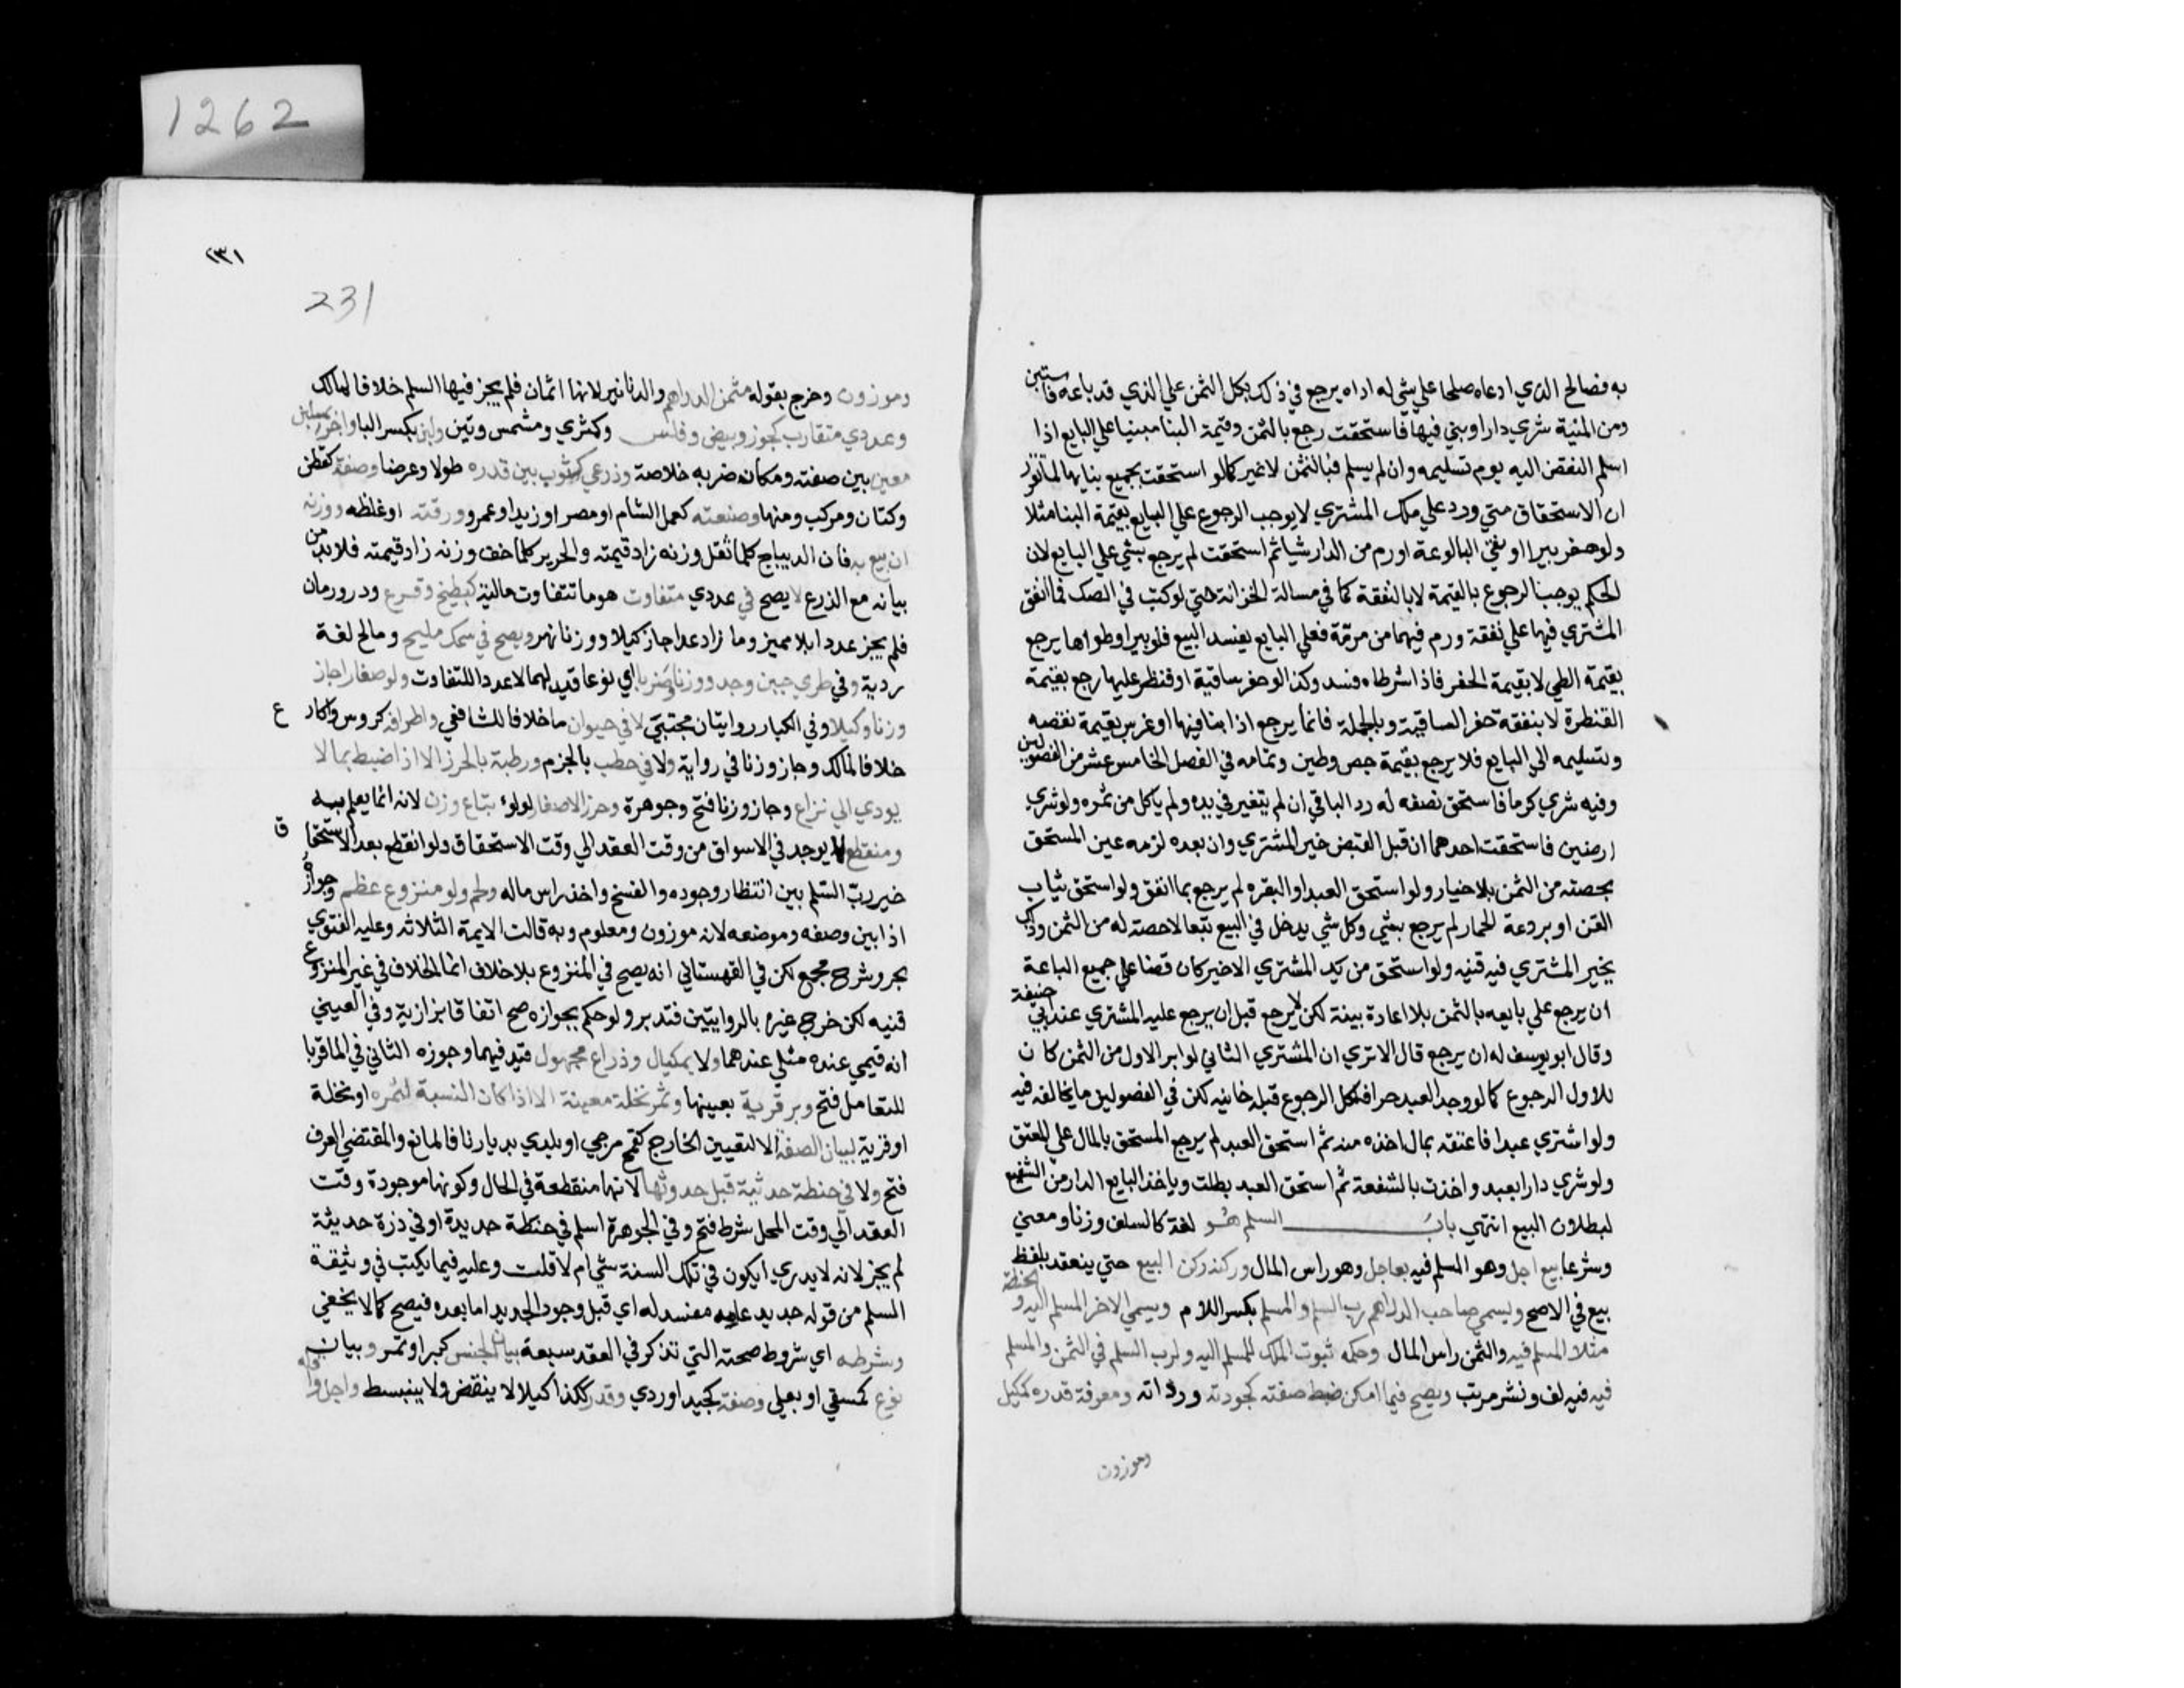 1262
به فصالح الذي ادعاه صلحا علي شي له اداه يرجع في ذلك بكل الثمن علي الذي قد باعه فاستبن
ومن المنية شري دارا وبني فيها فاستحقت رجع بالثمن وقيمة البنا مبنيا علي البايع اذا
اسلم النقض اليه يوم تسليمه وان لم يسلم فبالثمن لا غير كما لو استحقت بجميع بنايها لما تقرر
ان الاستحقاق متي ورد علي ملك المشتري لا يوجب الرجوع علي البايع بقيمة البنا مثلا
ولو حفر بيرا او نقي البالوعة اورم من الدار شيا ثم استحقت لم يرجع بشي علي البايع لان
الحكم يوجب الرجوع بالقيمة لا بالنفقة كما في مسالة الخزانة حتي لو كتب في الصك فما انفق
المشتري فيها علي نفقة ورم فيها من مرمة فعلي البايع يفسد البيع فلو بيرا وطواها يرجع
بقيمة الطي لا بقيمة الحفر فاذا شرطاه فسد وكذا لو حفر ساقية او قنطر عليها رجع بقيمة
القنطرة لا بنفقة حفر الساقية وبالجملة فانما يرجع اذا بنا فيها او غرس بقيمة نقضه
وتسليمه الي البايع فلا يرجع بقيمة جص وطين وتمامه في الفصل الخامس عشر من الفصولين
وفيه شري كرما فاستحق نصفه له رد الباقي ان لم يتغير في يده ولم ياكل من ثمره ولو شري
ارضين فاستحقت احدهما ان قبل القبض خير المشتري وان بعده لزمه عين المستحق
بحصته من الثمن بلا خيار ولو استحق العبد او البقره لم يرجع بما انفق ولو استحق ثياب
القن او بردعة الحمار لم يرجع بشي وكل شي يدخل في البيع تبعا لا حصته له من الثمن ولكن
يخير المشتري فيه قنيه ولو استحق من يد المشتري الاخير كان قضا علي جميع الباعة
ان يرجع علي بايعه بالثمن بلا اعادة بينة لكن لا يرجع قبل ان يرجع عليه المشتري عند ابي حنيفة
وقال ابو يوسف له ان يرجع قال الا تري ان المشتري الثاني لو ابر الاول من الثمن كان
للاول الرجوع كما لو وجد العبد حرا فلكل الرجوع قبله خانيه لكن في الفصولين ما يخالفه فيه
ولو اشتري عبدا فاعتقه بمال اخذه منه ثم استحق العبد لم يرجع المستحق بالمال علي المعتق
ولو شري دارا بعبد واخذت بالشفعة ثم استحق العبد بطلت وياخذ البايع الدار من الشفيع
لبطلان البيع انتهي باب السلم هو لغة كالسلف وزنا ومعني
وشرعا بيع اجل وهو المسلم فيه بعاجل وهو راس المال وركنه ركن البيع حتي ينعقد بلفظ
بيع في الاصح ويسمي صاحب الدراهم رب السلم والمسلم بكسر اللام ويسمي الاخر المسلم اليه والحنطة
مثلا المسلم فيه والثمن راس المال وحكمه ثبوت الملك للمسلم اليه ولرب السلم في الثمن والمسلم
فيه فيه لف ونشر مرتب ويصح فيما امكن ضبط صفته كجودته ورداته ومعرفة قدره كمكيل
وموزون
٢٣١
231
وموزون وخرج بقوله مثمن الدراهم والدنانير لانها اثمان فلم يجز فيها السلم خلافا لمالك
وعددي متقارب كجوز وبيض وفلس وكمثري ومشمش وتين ولبن بكسر الباء واجر بملبن
معين بين صفته ومكان ضربه خلاصة وذرعي كثوب بين قدره طولا وعرضا وصنفه كقطن
وكتان ومركب ومنها وصنعته كعمل الشام او مصر او زيد او عمرو ورقته او غلظه ووزنه
ان بيع به فان الديباج كلما ثقل وزنه زاد قيمته والحرير كلما خف وزنه زاد قيمته فلا بد من
بيانه مع الذرع لا يصح في عددي متفاوت هو ما تتفاوت ماليته كبطيخ وقرع ودر ورمان
فلم يجز عددا بلا مميز وما زاد عدا جاز كيلا ووزنا نهر ويصح في سمك مليح ومالح لغة
ردية وفي طري حين وجد وزنا وضربا اي نوعا قيد لهما لا عددا للتفاوت ولو صغارا جاز
وزنا وكيلا وفي الكبار روايتان مجتبي لا في حيوان ما خلافا للشافعي واطرافه كروس واكارع
خلافا لمالك وجاز وزنا في رواية ولا في حطب بالحزم ورطبة بالجرز الا اذا ضبط بما لا
يودي الي نزاع وجاز وزنا فتح وجوهرة وخرز الا صغار لولوء تباع وزن لانه انما يعلم به
ومنقطع لا يوجد في الاسواق من وقت العقد الي وقت الاستحقاق ولو انقطع بعد الاستحقاق
خير رب السلم بين انتظار وجوده والفسخ واخذ راس ماله ولحم ولو منزوع عظم وجوازه
اذا بين وصفه وموضعه لانه موزون ومعلوم وبه قالت الايمة الثلاثه وعليه الفتوي
بحر وشرح مجمع لكن في القهستاني انه يصح في المنزوع بلا خلاف انما الخلاف في غير المنزوع
قنيه لكن خرج غيره بالروايتين فتدبر ولو حكم بجوازه صح اتفاقا بزازية وفي العيني
انه قيمي عنده مثلي عندهما ولا بمكيال وذراع مجهول قيد فيهما وجوزه الثاني في الما قربا
للتعامل فتح وبر قرية بعينها وثمر نخلة معينة الا اذا كان النسبة لثمره او نخلة
او قرية لبيان الصفة لا لتعيين الخارج كقمح مرجي او بلدي بديارنا فالمانع والمقتضي العرف
فتح ولا في حنطة حديثة قبل حدوثها لانها منقطعة في الحال وكونها موجودة وقت
العقد الي وقت المحل شرط فتح وفي الجوهرة اسلم في حنطة جديدة او في ذرة حديثة
لم يجز لانه لا يدري ايكون في تلك السنة شي ام لا قلت وعليه فيما يكتب في وثيقة
السلم من قوله جديد عامه مفسد له اي قبل وجود الجديد اما بعده فيصح كما لا يخفي
وشرطه اي شروط صحته التي تذكر في العقد سبعة بيان الجنس كبر او تمر وبيان
نوع كمسقي او بعلي وصفة كجيد او ردي وقدر ككذا كيلا لا ينقبض ولا ينبسط واجل واقله